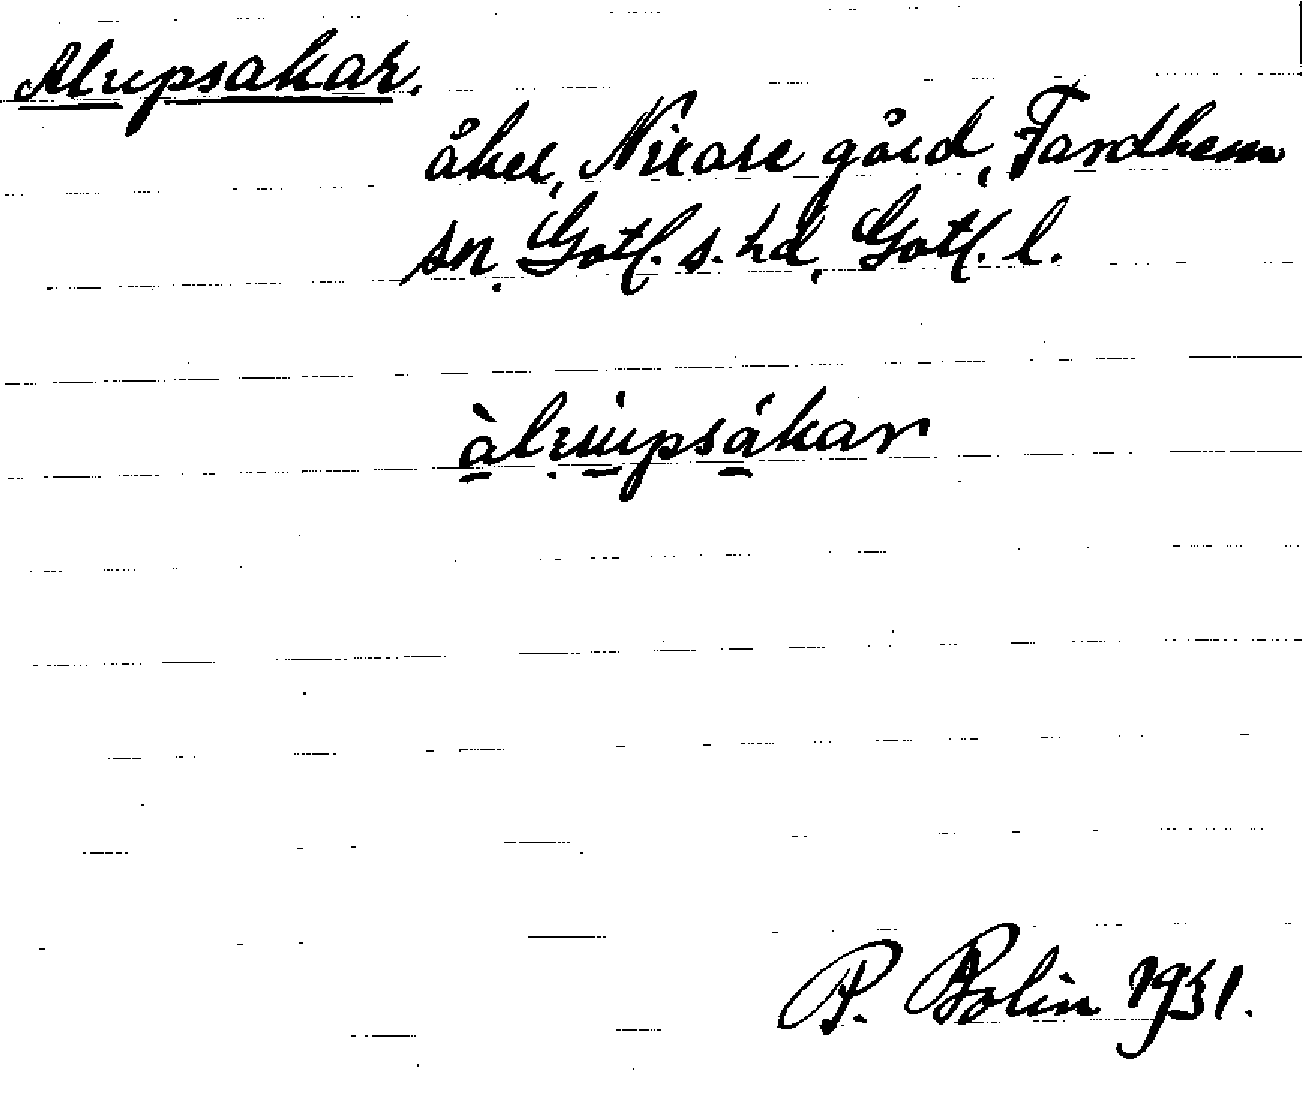 Alrupsakar.
åker, Nickarve gård, Fardhem
sn, Gotl. s. hd, Gotl. l.
àlrupsákar
P. Bolin 1931.